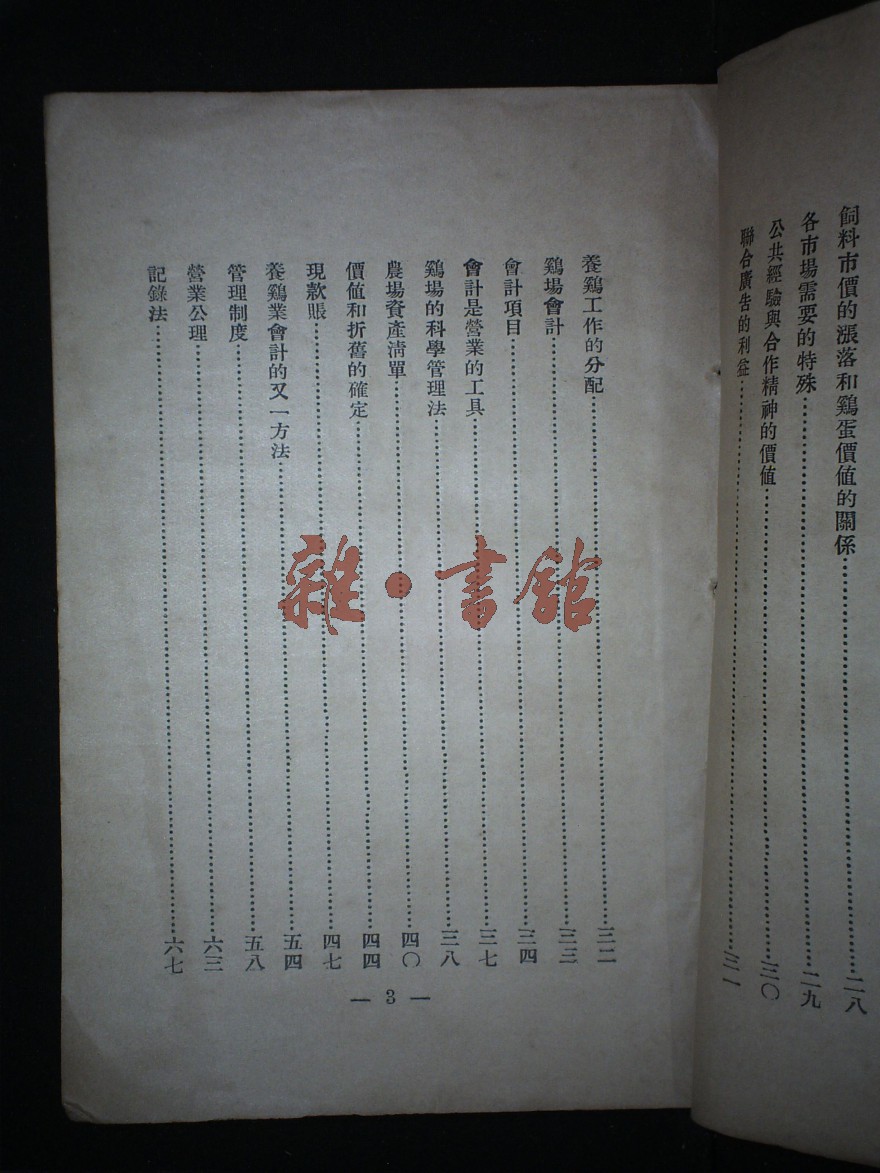 飼料市價的漲落和鷄蛋價值的關係……二八
各市場需要的特殊……二九
公共經驗與合作精神的價值……三〇
聯合廣告的利益……三一
養鷄工作的分配……三二
鷄場會計……三三
會計項目……三四
會計是營業的工具……三七
鷄場的科學管理法……三八
農場資產淸單……四〇
價值和折舊的確定……四四
現款賬……四七
養鷄業會計的又一方法……五四
管理制度……五八
營業公理……六三
記錄法……六七
— 3 —
雜·書館